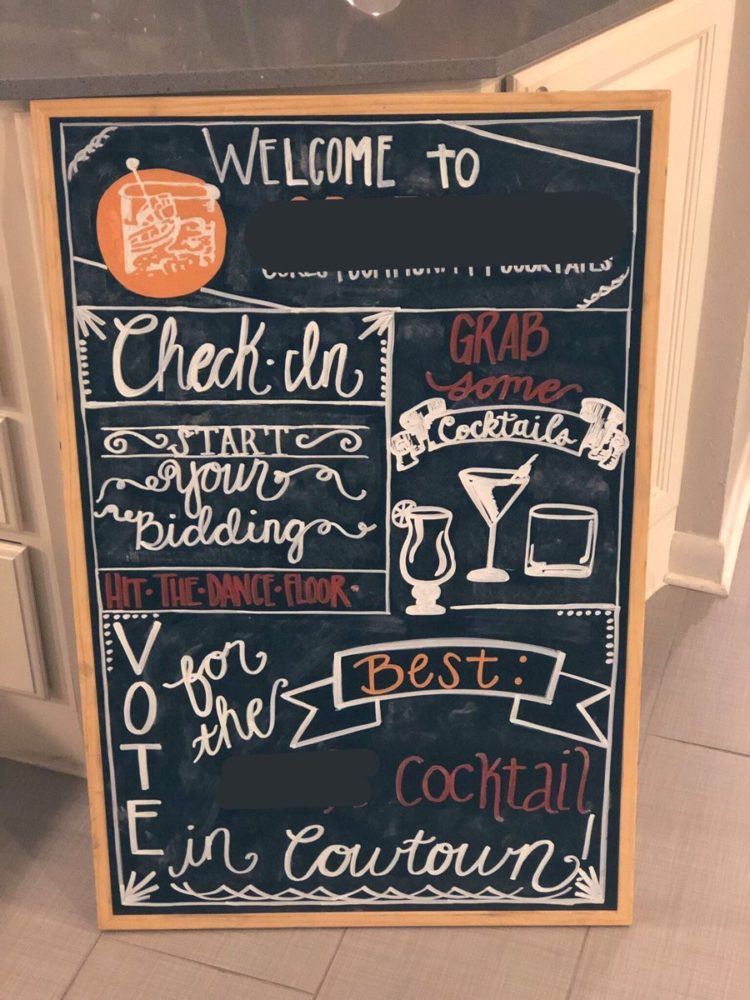 WELCOME TO
COMMUNITY | COCKTAILS
Check-In
START
your
Bidding
HIT·THE·DANCE·FLOOR·
GRAB
some
Cocktails
VOTE
for
the
Best:
Cocktail
in Cowtown!